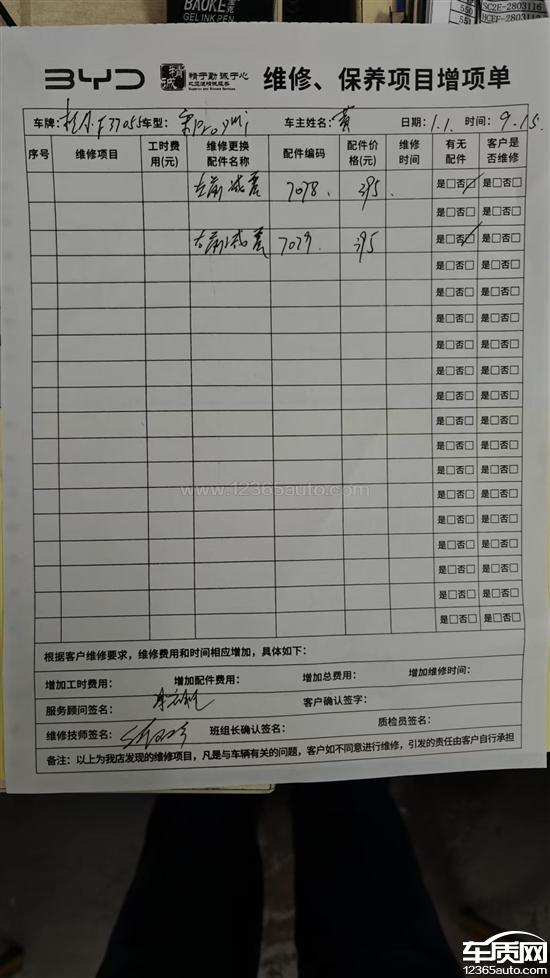 BAOKE宝克
GEL INK PEN
550
SC2E-2803116
551
HCEF-2803112
BYD 精诚 精于勤 诚于心 维修、保养项目增项单
车牌: F37055 车型: 宋Pro DMi 车主姓名: 黄 日期: 1.1. 时间: 9.15
序号 维修项目 工时费用(元) 维修更换配件名称 配件编码 配件价格(元) 维修时间 有无配件 客户是否维修
左前减震 7078. 395 是□否☑ 是□否□
是□否□ 是□否□
右前减震 7079. 395 是□否☑ 是□否□
是□否□ 是□否□
是□否□ 是□否□
是□否□ 是□否□
是□否□ 是□否□
是□否□ 是□否□
是□否□ 是□否□
是□否□ 是□否□
是□否□ 是□否□
是□否□ 是□否□
www.12365auto.com
是□否□ 是□否□
是□否□ 是□否□
是□否□ 是□否□
是□否□ 是□否□
是□否□ 是□否□
是□否□ 是□否□
根据客户维修要求，维修费用和时间相应增加，具体如下：
增加工时费用： 增加配件费用： 增加总费用： 增加维修时间：
服务顾问签名： 客户确认签字：
维修技师签名： 班组长确认签名： 质检员签名：
备注：以上为我店发现的维修项目，凡是与车辆有关的问题，客户如不同意进行维修，引发的责任由客户自行承担
车质网
12365auto.com